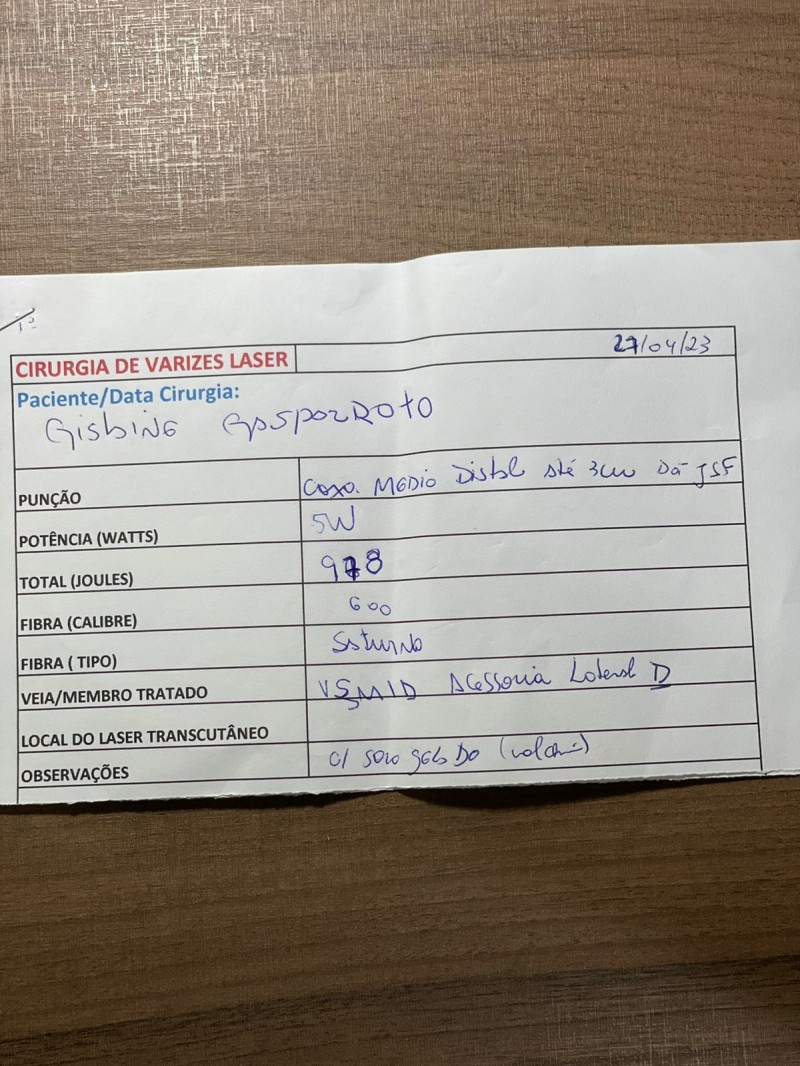 1º
CIRURGIA DE VARIZES LASER 27/04/23
Paciente/Data Cirurgia:
Gisbine GasparRoto
PUNÇÃO Coxa. MEDIO Distal Até 3cm Da JSF
POTÊNCIA (WATTS) 5W
TOTAL (JOULES) 978
FIBRA (CALIBRE) 600
FIBRA ( TIPO) Saturno
VEIA/MEMBRO TRATADO Acessoria Lateral D
LOCAL DO LASER TRANSCUTÂNEO
OBSERVAÇÕES c/ soro gelado